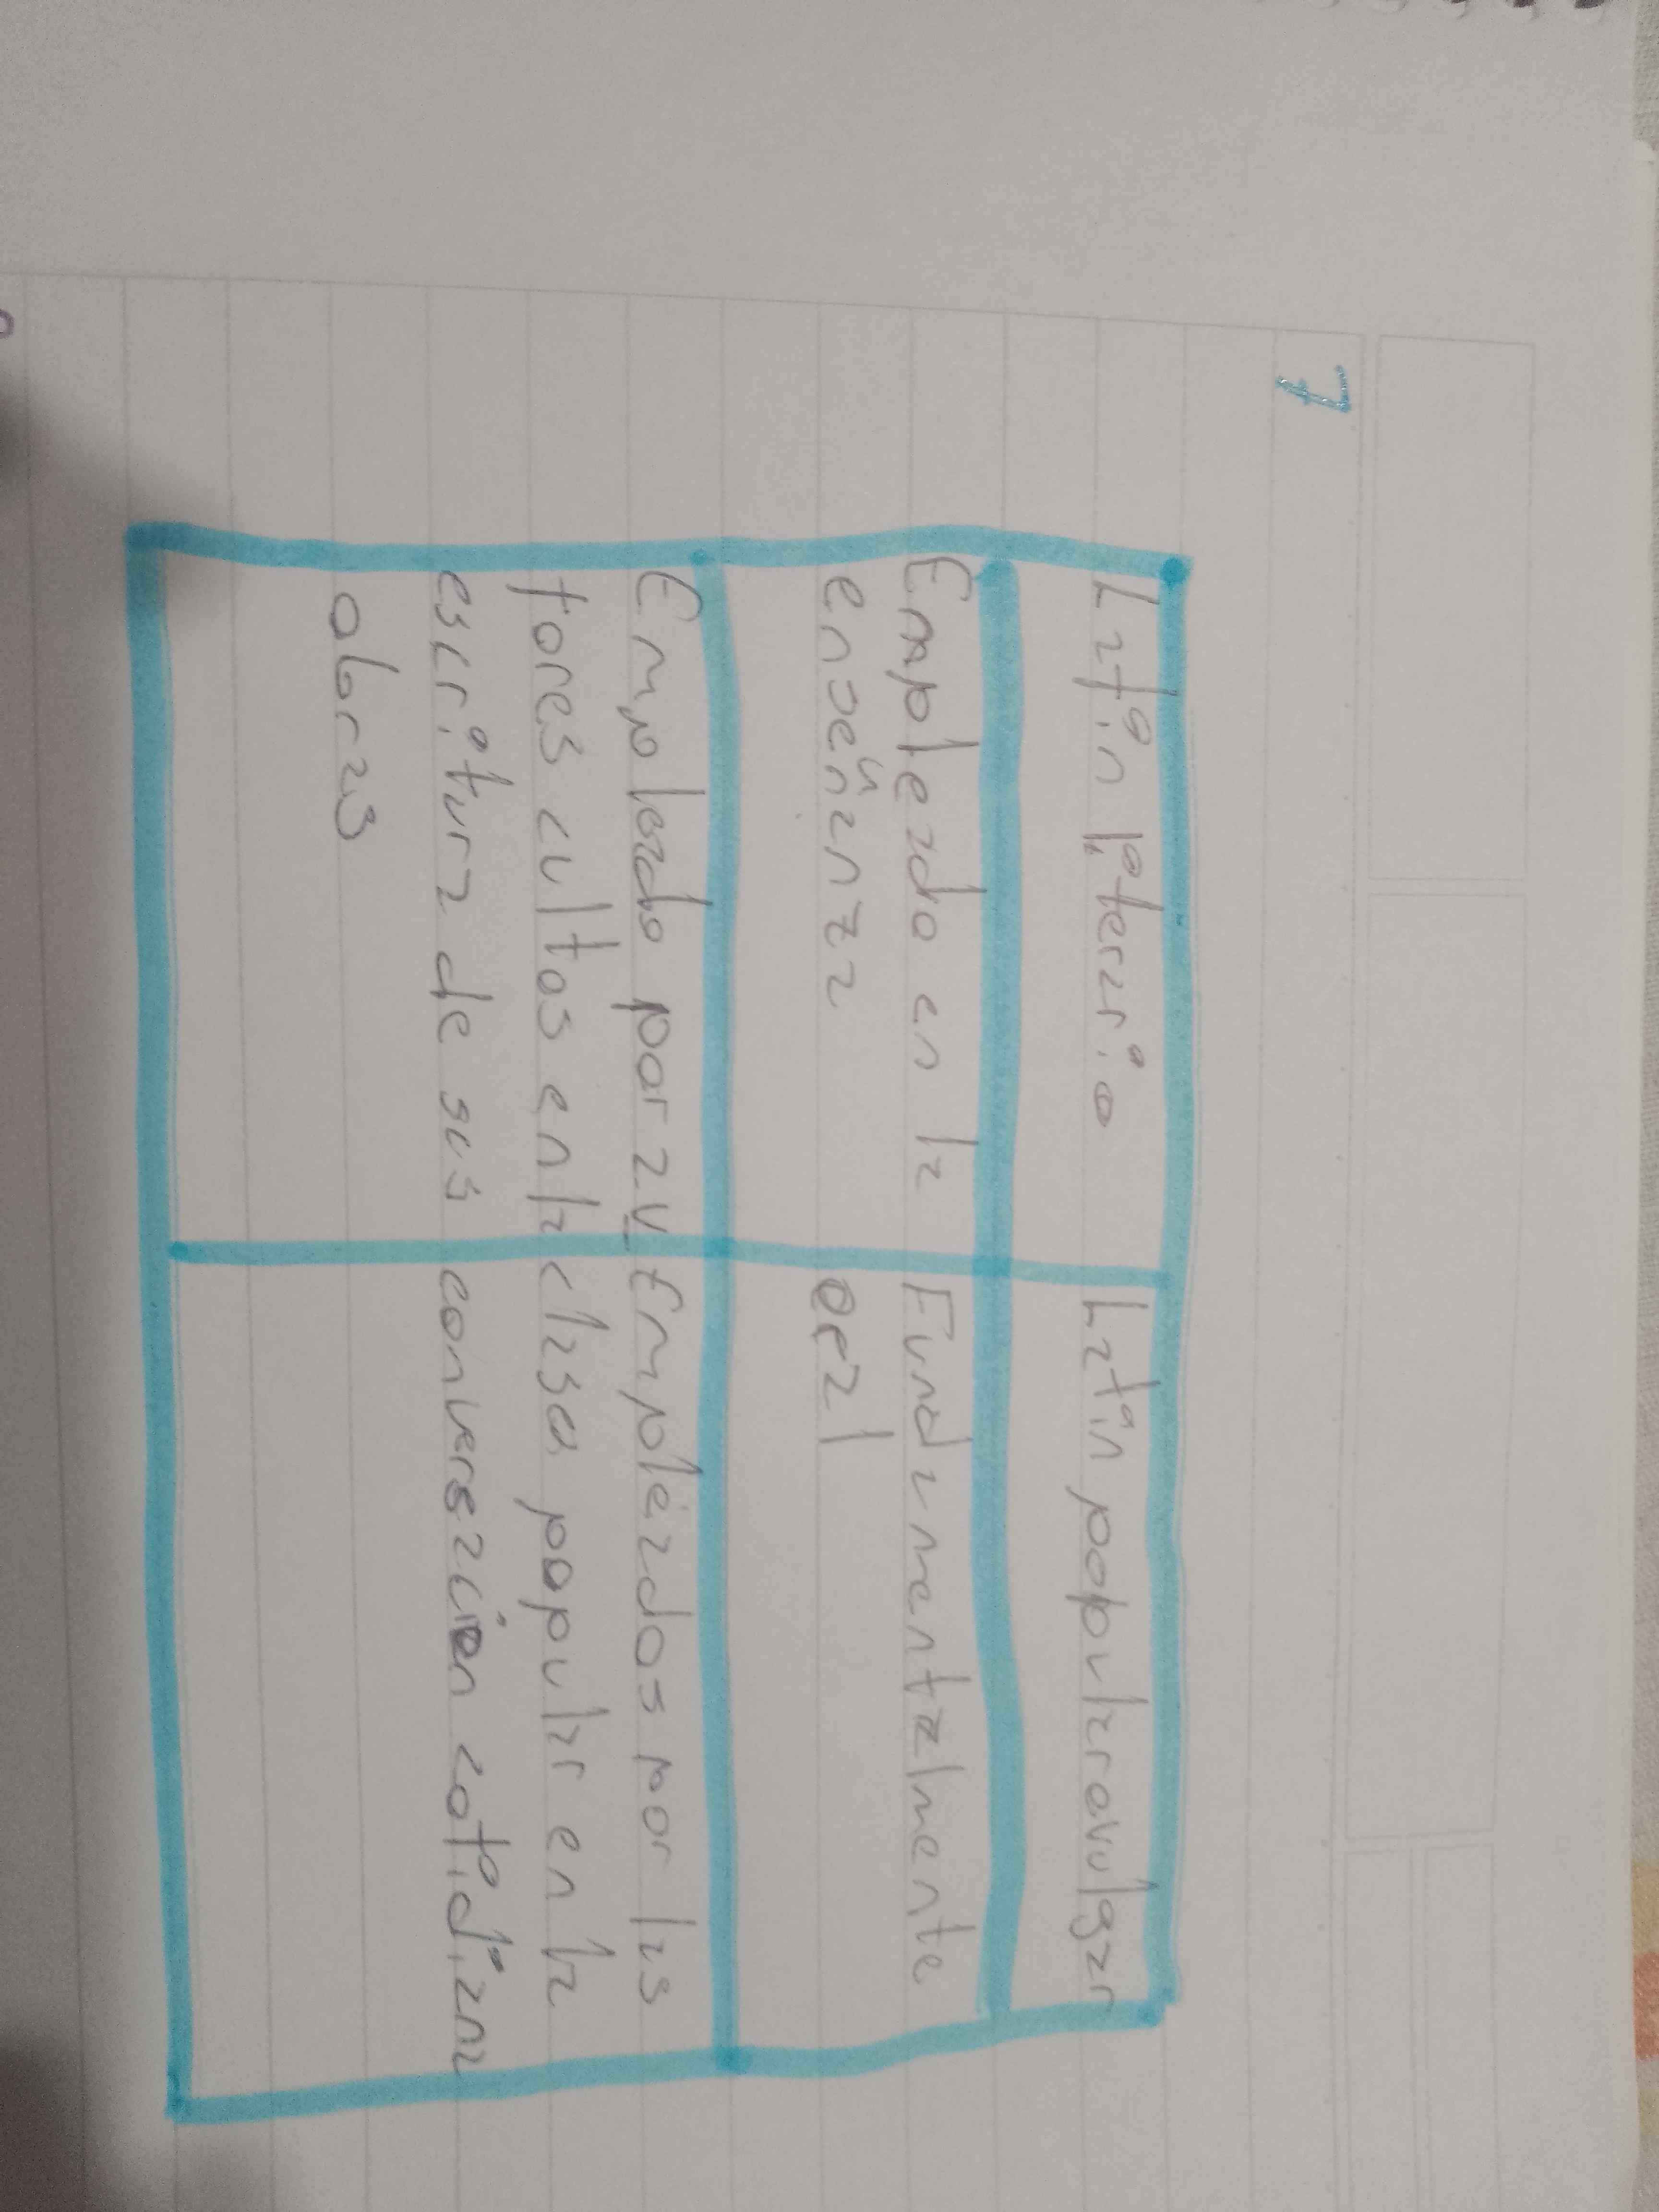 7
Latin literario
Latin popular o vulgar
Empleado en la
enseñanza
Fundamentalmente
oral
Empleado por au_
tores cultos en la
escritura de sus
obras
Empleados por las
clases popular en la
conversación cotidiana